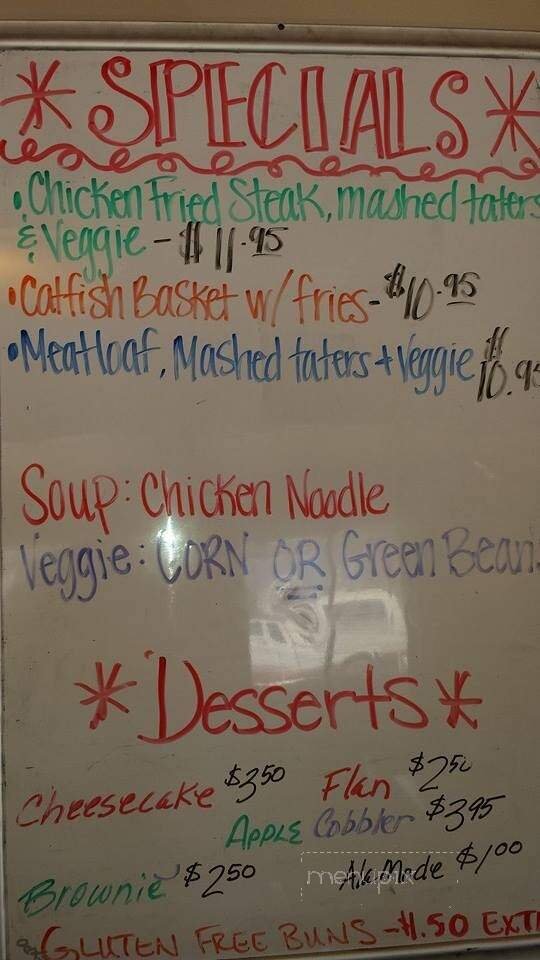 *SPECIALS*
•Chicken Fried Steak, mashed taters
& Veggie - $11.95
•Catfish Basket w/ fries - $10.95
•Meatloaf, Mashed taters + Veggie $10.95
Soup: Chicken Noodle
Veggie: CORN OR Green Bean
*Desserts*
Cheesecake $3.50 Flan $2.50
Apple Cobbler $3.95
Brownie $2.50 AlaMode $1.00
menupix
GLUTEN FREE BUNS - $1.50 EXT